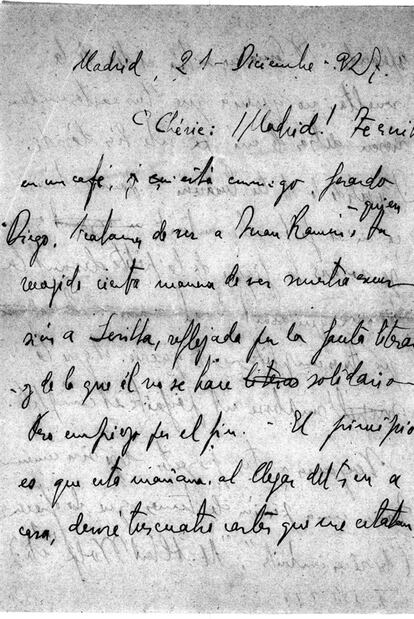 Madrid, 21 - Diciembre - 927.
Chérie: ¡Madrid! Te escri
en un café, y está conmigo Gerardo
Diego. Tratamos de ver a Juan Ramón, quien
recogido cierta manera de ver nuestra excur
sión a Sevilla, reflejada por la Gaceta litera
y de lo que él no se hace solidario
Pero empiezo por el fin. - El principio
es que esta mañana, al llegar del tren a
casa, devoré tus cuatro cartas que me estaban